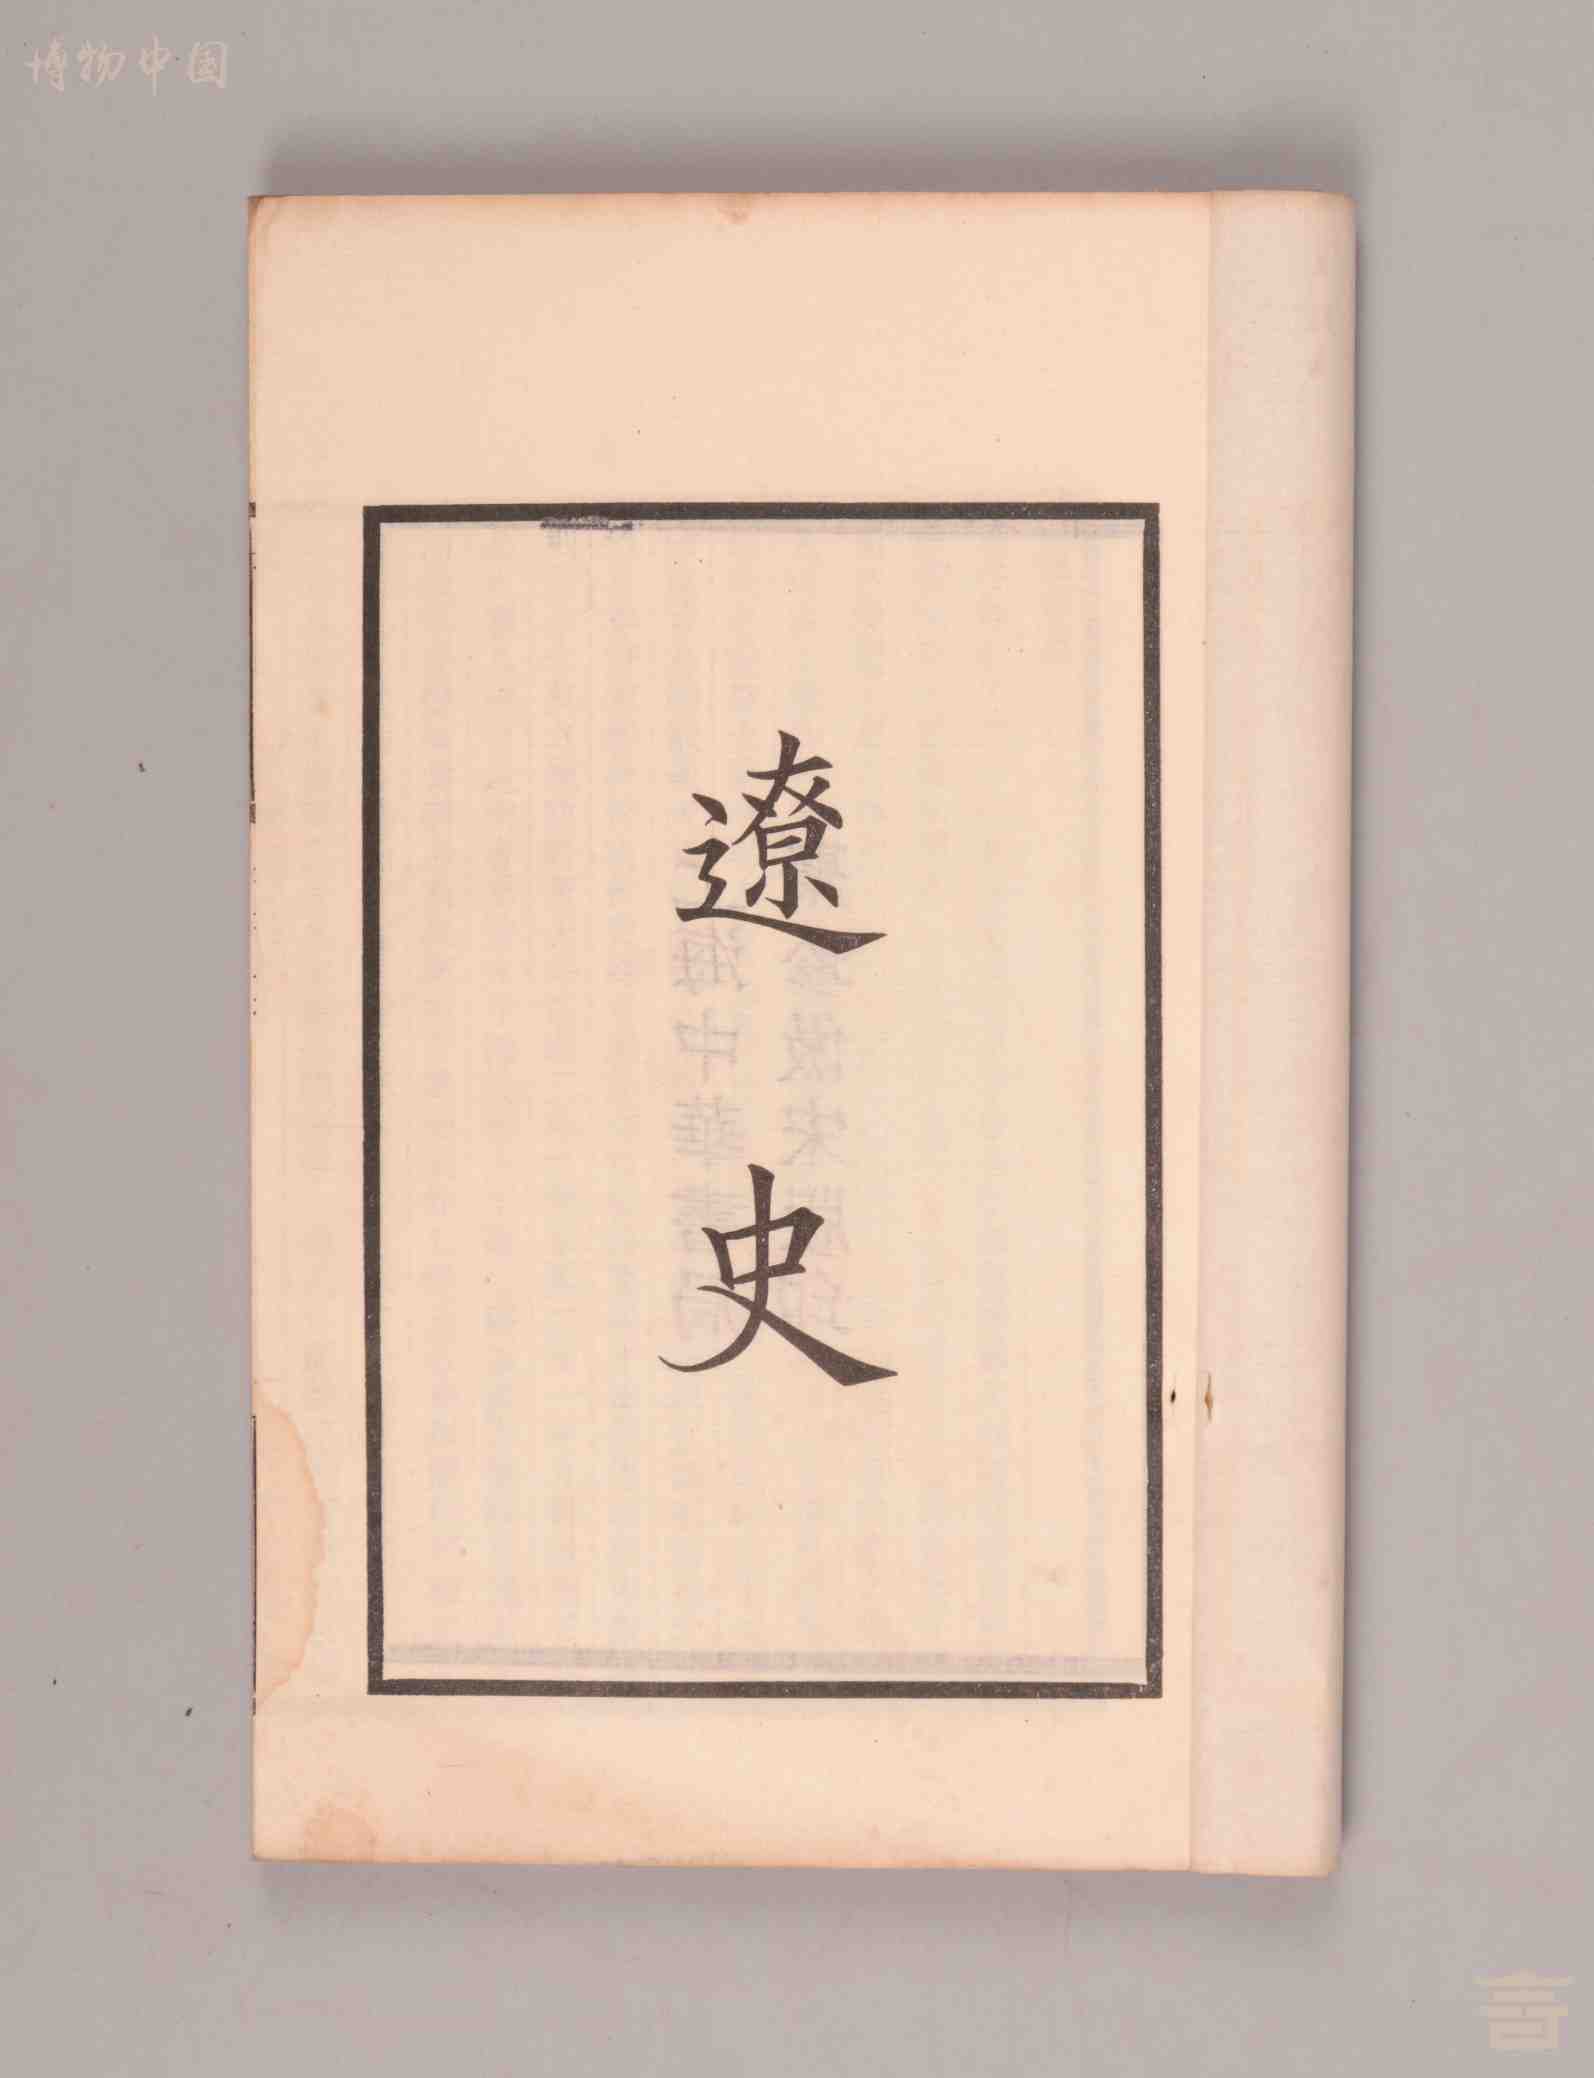 博物中国
遼史